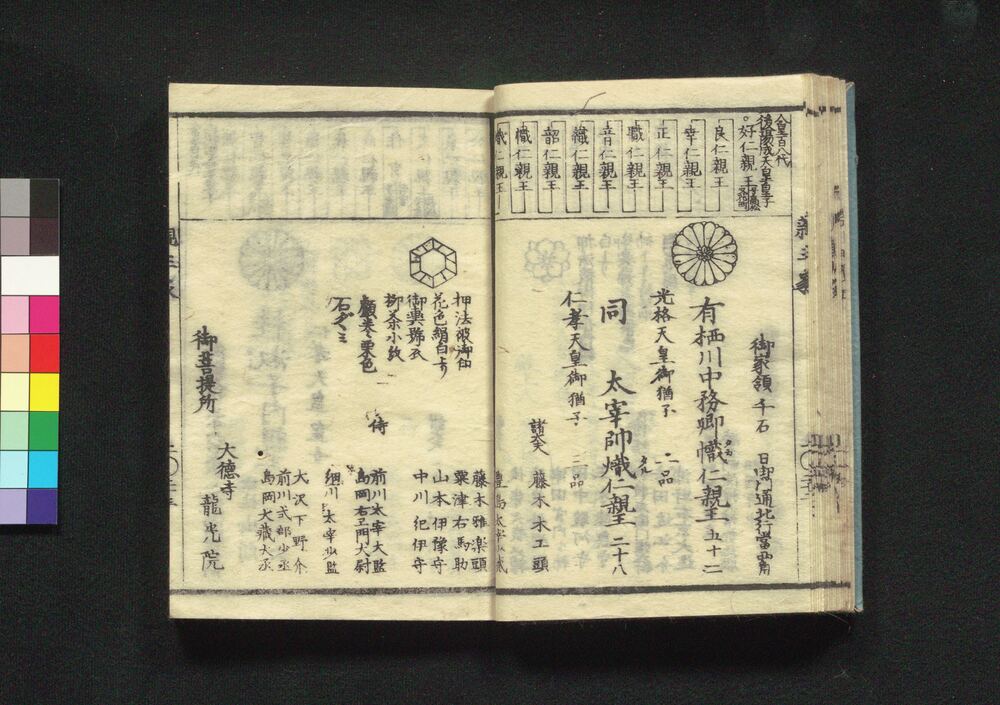 人皇百八代
後陽成天皇皇子
好仁親王
良仁親王
幸仁親王
正仁親王
職仁親王
音仁親王
織仁親王
韶仁親王
幟仁親王
熾仁親王
親王家
御家領 千石 日御門通北行當
有栖川中務卿幟仁親王 五十二
光格天皇御猶子 一品
同 太宰帥熾仁親王 二十八
仁孝天皇御猶子 二品
諸大夫 藤木木工頭
豊島太宰少貳
藤木雅楽頭
粟津右馬助
山本伊豫守
中川紀伊守
押法被御紬
花色絹白上り
御輿舁衣
柳茶小紋
顱巻栗色
石グミ
侍
前川太宰大監
島岡右衛門大尉
細川太宰少監
大沢下野介
前川式部少丞
島岡大蔵大丞
御菩提所
大徳寺 龍光院